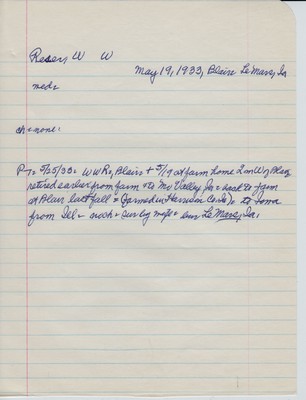 Reser, W W
May 19, 1933, Blair & LeMars, Ia
med=
ch=none=
P7= 5/25/33= W W R, Blair, + 5/19 at farm home 2 m W of Blair
retired earlier from farm & to Mo Valley Ia = back to farm
at Blair last fall = (farmed in Harrison Co Ia) = to Iowa
from Ill = & surv by wife = bur Le Mars, Ia.